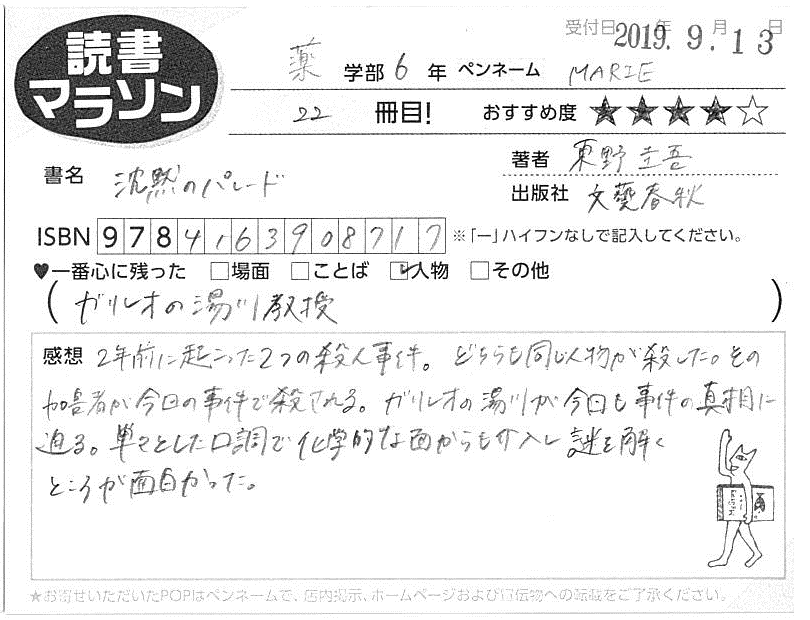 読書
マラソン
受付日 2019年 9月 13日
薬 学部 6 年 ペンネーム MARIE
22 冊目! おすすめ度 ★★★★☆
書名 沈黙のパレード
著者 東野圭吾
出版社 文藝春秋
ISBN 9784163908717 ※「ー」ハイフンなしで記入してください。
♥一番心に残った □場面 □ことば ☑人物 □その他
(ガリレオの湯川教授)
感想 2年前に起こった2つの殺人事件。どちらも同じ人物が殺した。その
加害者が今回の事件で殺される。ガリレオの湯川が今回も事件の真相に
迫る。単々とした口調で化学的な面からも介入し謎を解く
ところが面白かった。
★お寄せいただいたPOPはペンネームで、店内掲示、ホームページおよび宣伝物への転載をご了承ください。